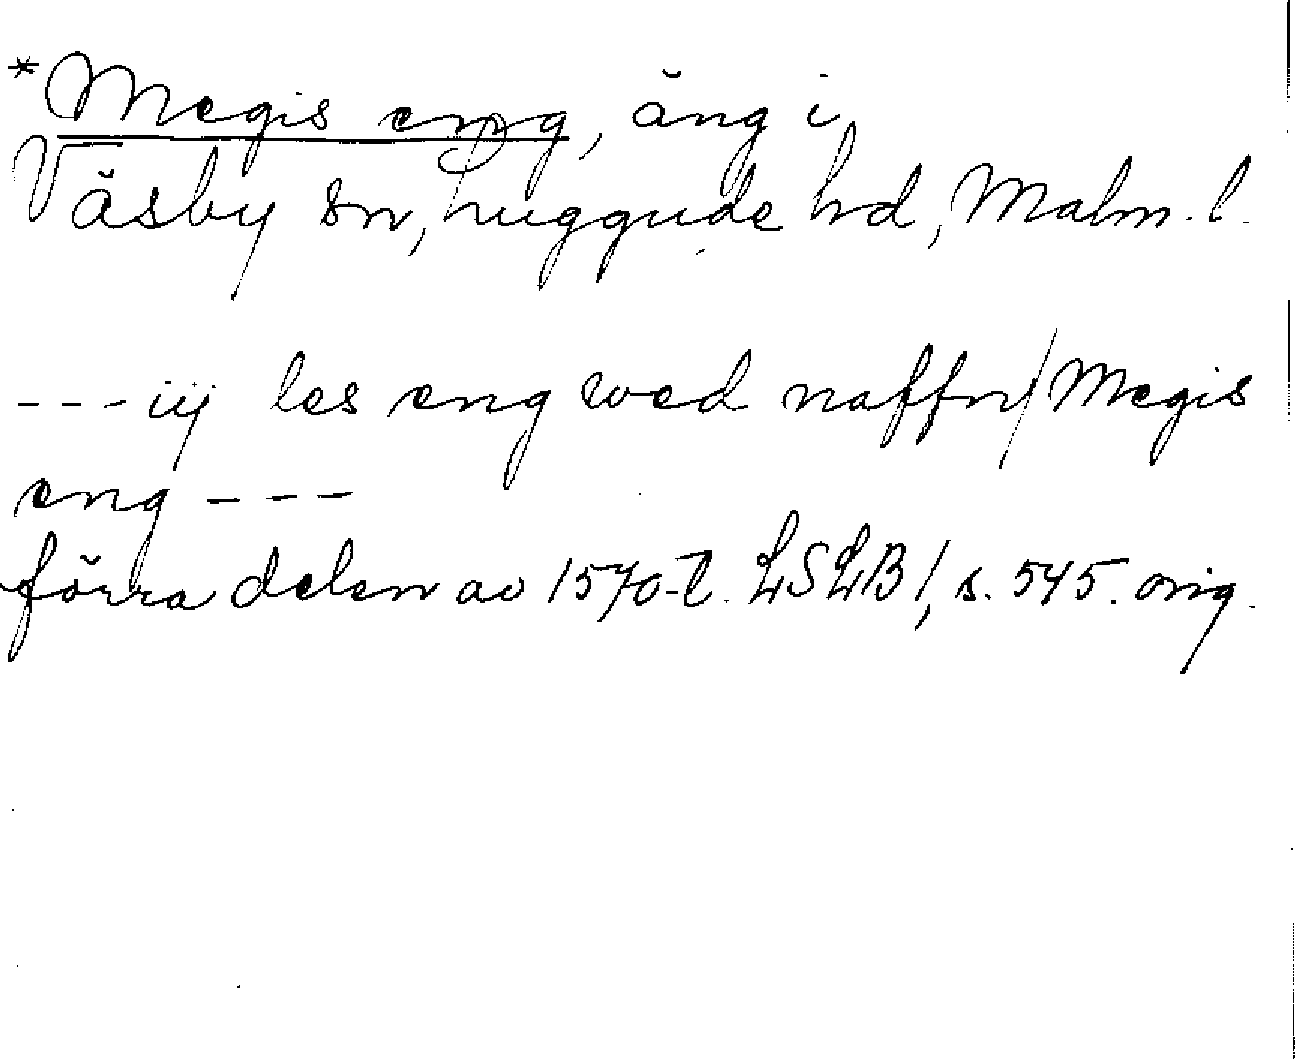 *Megis eng, äng i
Väsby sn, Luggude hd, Malm. l.
---iij les eng wed naffn/Megis
eng ---
förra delen av 1570-t. LSLB I, s. 545. orig.